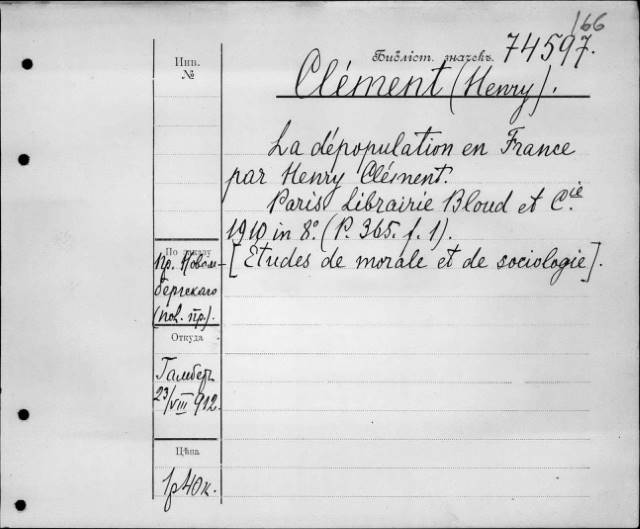 166
Инв.
№
Библіот. значекъ. 74597.
Clément (Henry).
La dépopulation en France
par Henry Clément.
Paris Librairie Bloud et Cie.
1910 in 8º. (P. 365. f. 1).
[Etudes de morale et de sociologie].
По заказу
пр. Новом-
бергскаго
(пол. пр.).
Откуда
Гамберъ
23/VIII 912.
Цѣна
1р 40к.